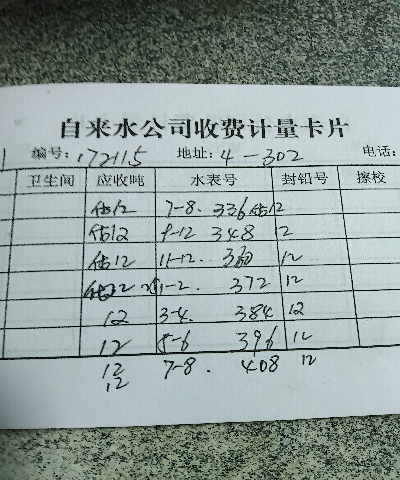 自来水公司收费计量卡片
编号: 172115 地址: 4-302 电话:
卫生间 应收吨 水表号 封铅号 擦校
估12 7-8. 336 估12
估12 9-12 348 12
估12 11-12. 360 12
1-2. 372 12
12 3-4. 384 12
12 5-6 396 12
12 7-8. 408 12
12